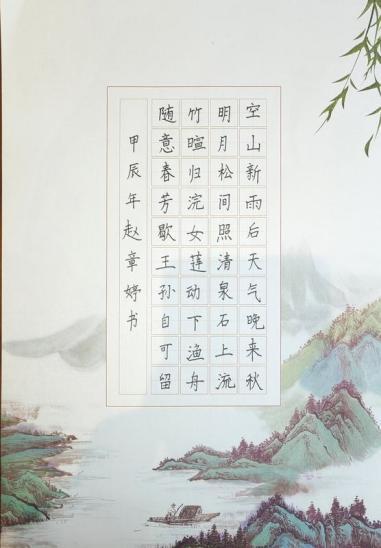 空山新雨后天气晚来秋
明月松间照清泉石上流
竹暄归浣女莲动下渔舟
随意春芳歇王孙自可留
甲辰年赵章婷书